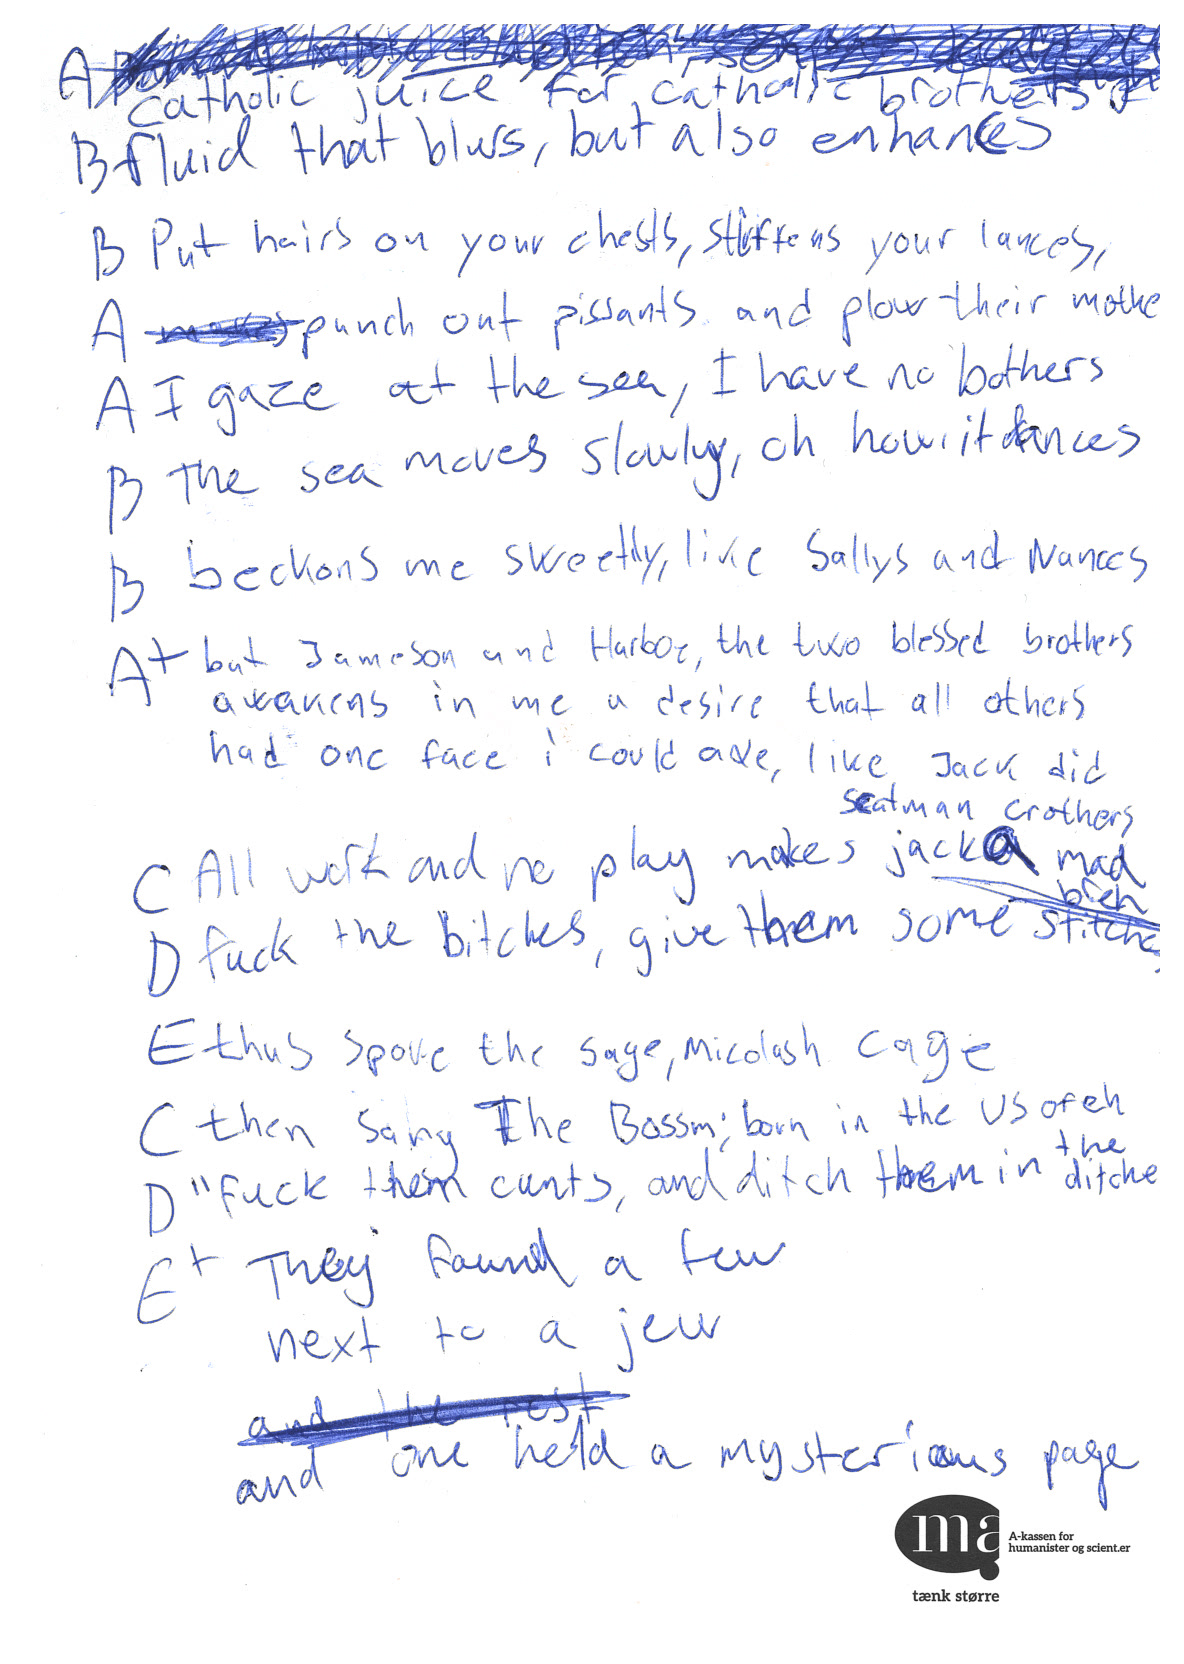 A
catholic juice for catholic brothers
B fluid that blurs, but also enhances
B Put hairs on your chests, stiffens your lances,
A punch out pissants and plow their mothe
A I gaze at the sea, I have no bothers
B The sea moves slowly, oh how it dances
B beckons me sweetly, like Sallys and Nances
A+ but Jameson and Harboe, the two blessed brothers
awakens in me a desire that all others
had one face i could axe, like Jack did
Scatman Crothers
C All work and no play makes jack a mad
breh
D fuck the bitches, give them some stitches
E thus spoke the sage, Micolash Cage
C then sang The Bossm; born in the US of eh
the
D "Fuck them cunts, and ditch them in ditche
E+ They found a few
next to a jew
and the rest
and one held a mysterious page
ma
A-kassen for
humanister og scient.er
tænk større